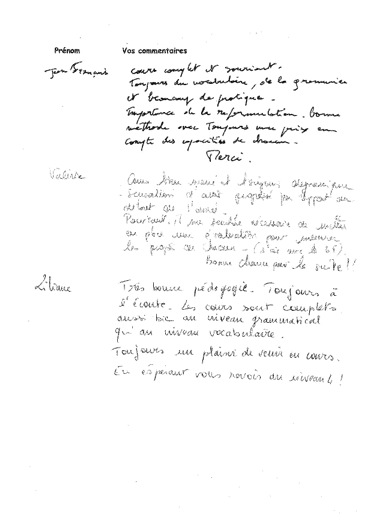 Prénom Vos commentaires
Jean François cours complet et souriant.
Toujours du vocabulaire, de la grammaire
et beaucoup de pratique.
Importance de la reformulation. bonne
méthode avec Toujours une prise en
compte des capacités de chacun.
Merci.
Valérie Cours bien mené et toujours
sensation d'avoir progressé par rapport au
début de l'année.
Pourtant, il me semble nécessaire de mettre
en place une évaluation pour mesurer
les progrès de chacun
Bonne chance pour la suite!!
Liliane Très bonne pédagogie. Toujours à
l'écoute. Les cours sont complets
aussi bien au niveau grammatical
qu'au niveau vocabulaire.
Toujours un plaisir de venir en cours.
En espérant vous revoir au niveau 4!